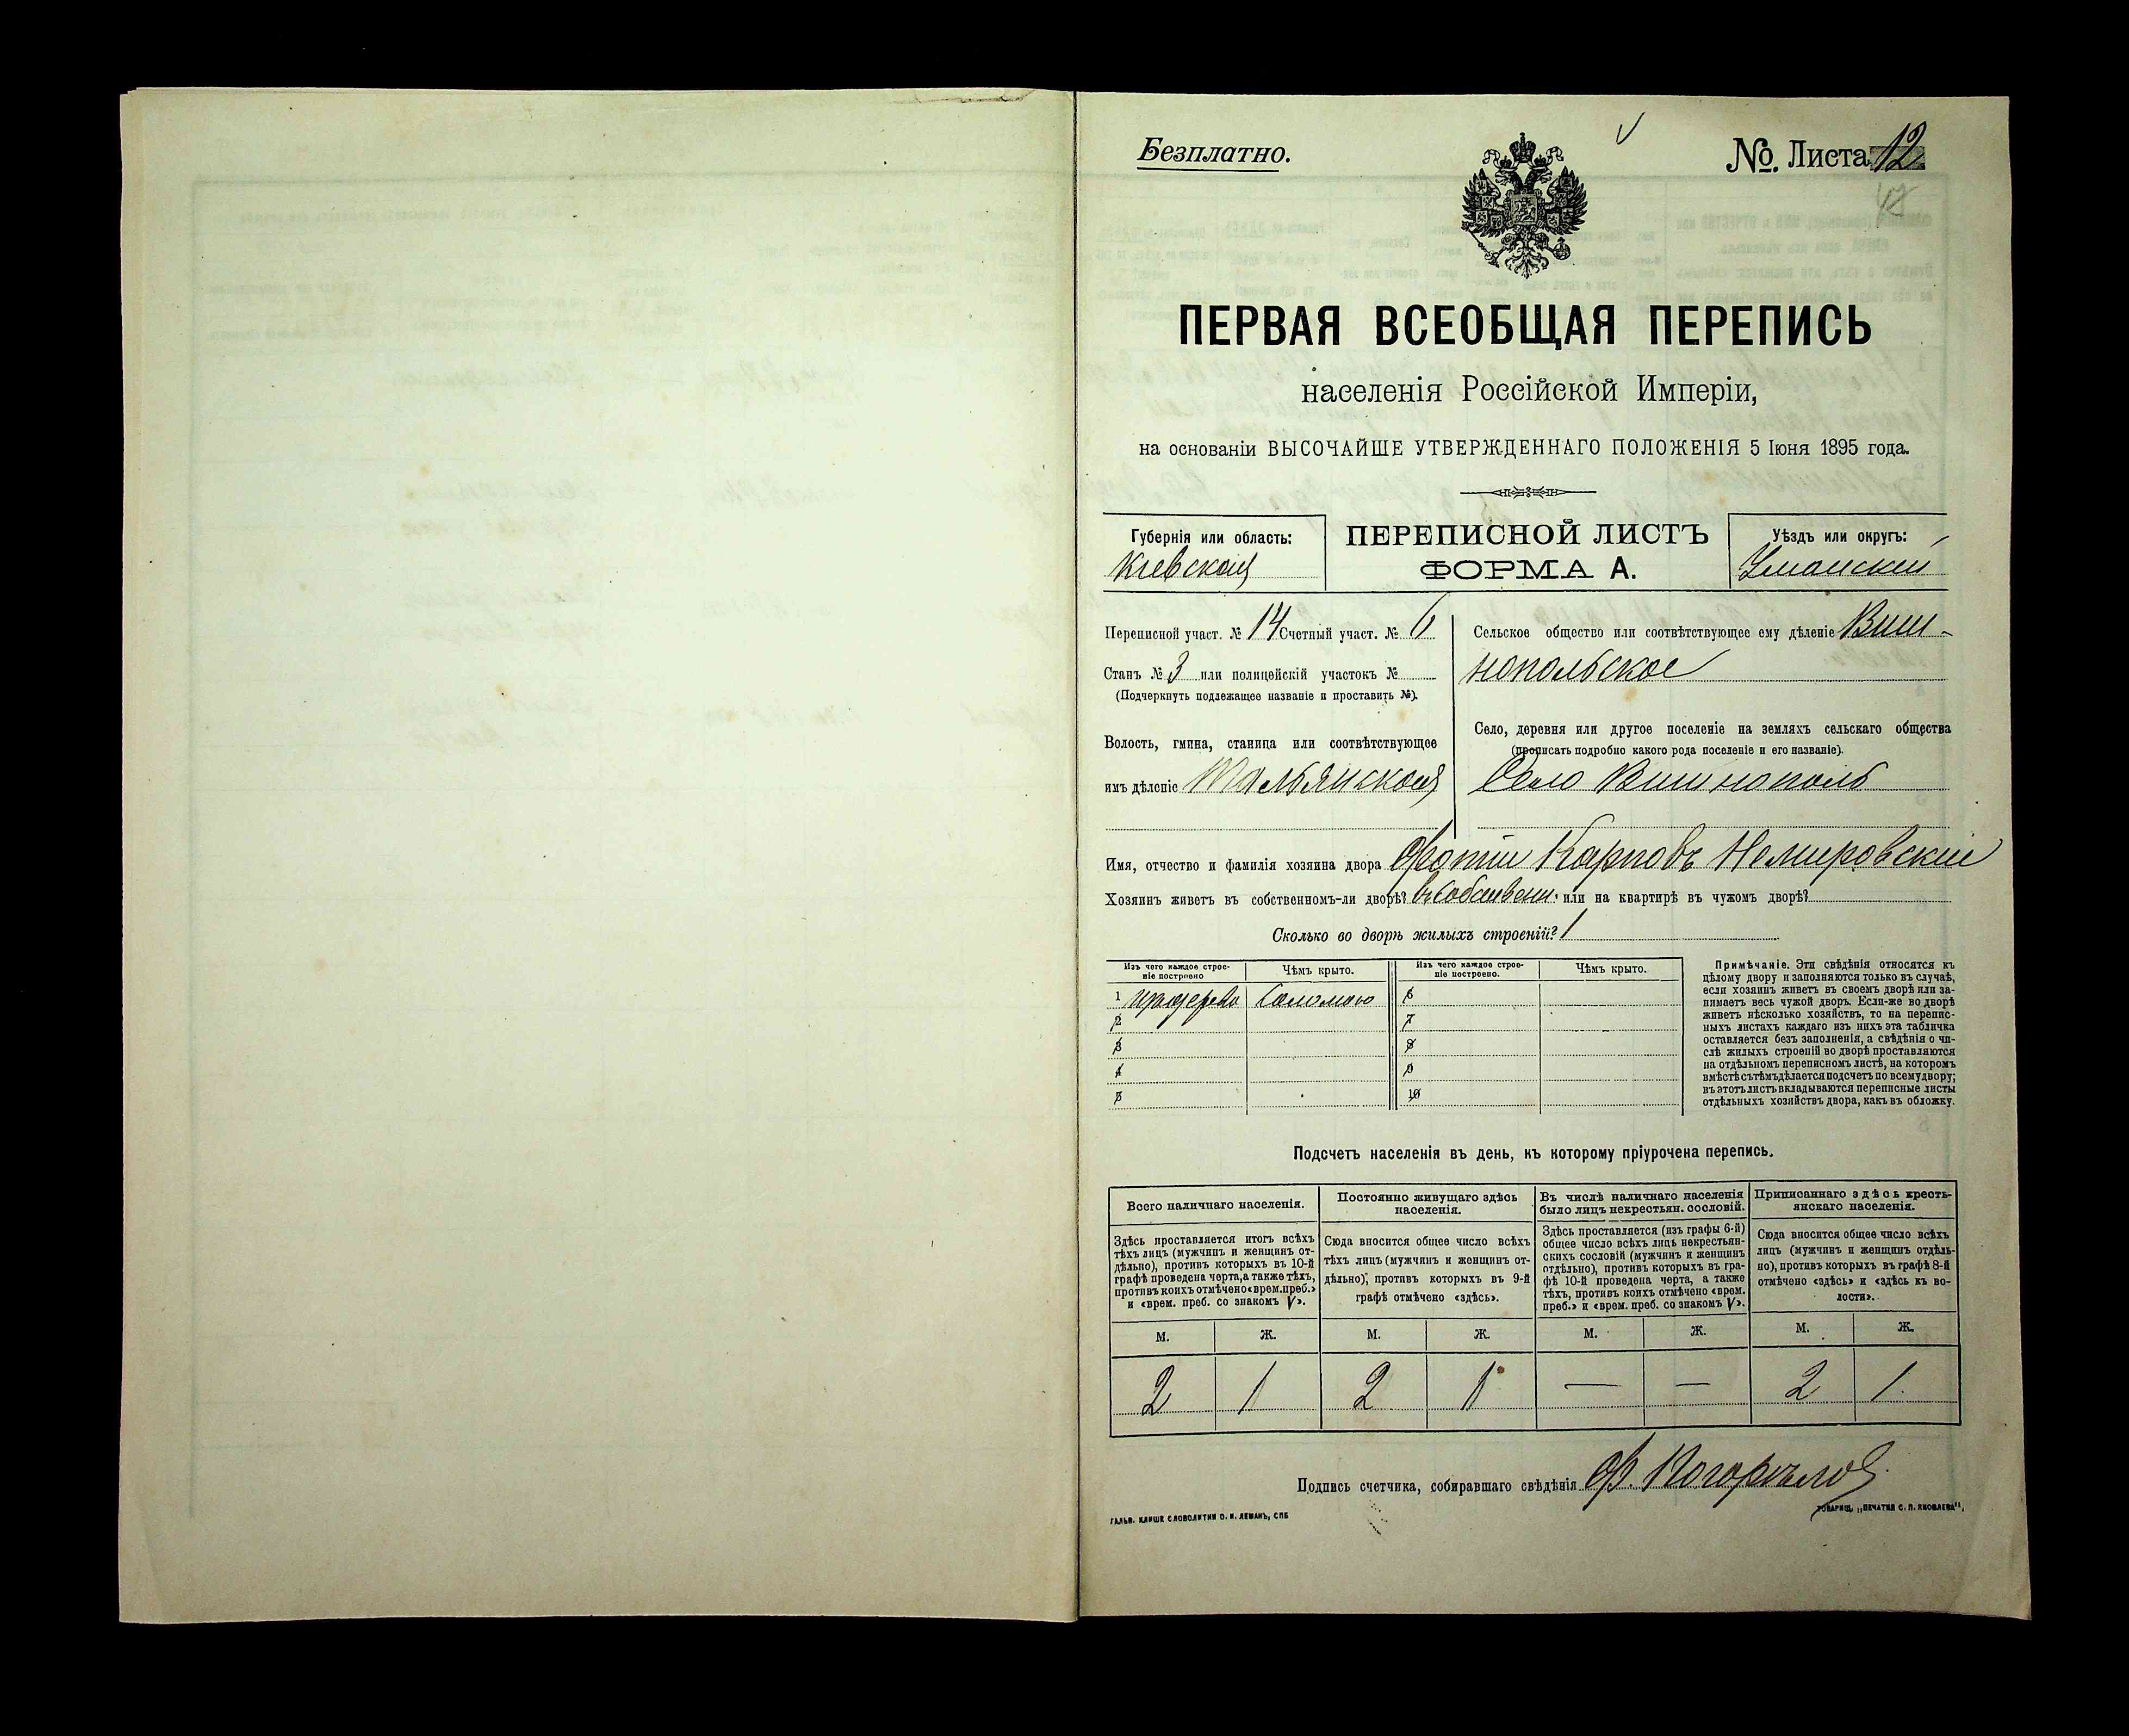 Безплатно.
№ Листа 12
ПЕРВАЯ ВСЕОБЩАЯ ПЕРЕПИСЬ
населенія Россійской Имперіи,
на основаніи ВЫСОЧАЙШЕ УТВЕРЖДЕННАГО ПОЛОЖЕНІЯ 5 Іюня 1895 года.
Губернія или область:
Кіевская
ПЕРЕПИСНОЙ ЛИСТЪ
ФОРМА А.
Уѣздъ или округъ:
Уманскій
Переписной участ. № 14 Счетный участ. № 6
Станъ № 3 или полицейскій участокъ №
(Подчеркнуть подлежащее названіе и проставить №).
Волость, гмина, станица или соотвѣтствующее
имъ дѣленіе Тальянская
Сельское общество или соотвѣтствующее ему дѣленіе Виш-
нопольское
Село, деревня или другое поселеніе на земляхъ сельскаго общества
(прописать подробно какого рода поселеніе и его названіе).
Село Вишнополь
Имя, отчество и фамилія хозяина двора Фотій Карповъ Немировскій
Хозяинъ живетъ въ собственномъ-ли дворѣ? въ собствен. или на квартирѣ въ чужомъ дворѣ?
Сколько во дворѣ жилыхъ строеній? 1
Изъ чего каждое строе-
ніе построено
Чѣмъ крыто.
Изъ чего каждое строе-
ніе построено.
Чѣмъ крыто.
1 изъ дерева Соломою 6
2 7
3 8
4 9
5 10
Примѣчаніе. Эти свѣдѣнія относятся къ
цѣлому двору и заполняются только въ случаѣ,
если хозяинъ живетъ въ своемъ дворѣ или за-
нимаетъ весь чужой дворъ. Если-же во дворѣ
живетъ нѣсколько хозяйствъ, то на перепис-
ныхъ листахъ каждаго изъ нихъ эта табличка
оставляется безъ заполненія, а свѣдѣнія о чи-
слѣ жилыхъ строеній во дворѣ проставляются
на отдѣльномъ переписномъ листѣ, на которомъ
вмѣстѣ съ тѣмъ дѣлается подсчетъ по всему двору;
въ этотъ листъ вкладываются переписные листы
отдѣльныхъ хозяйствъ двора, какъ въ обложку.
Подсчетъ населенія въ день, къ которому пріурочена перепись.
Всего наличнаго населенія.
Здѣсь проставляется итогъ всѣхъ
тѣхъ лицъ (мужчинъ и женщинъ от-
дѣльно), противъ которыхъ въ 10-й
графѣ проведена черта, а также тѣхъ,
противъ коихъ отмѣчено «врем. преб.»
и «врем. преб. со знакомъ V».
Постоянно живущаго здѣсь
населенія.
Сюда вносится общее число всѣхъ
тѣхъ лицъ (мужчинъ и женщинъ от-
дѣльно), противъ которыхъ въ 9-й
графѣ отмѣчено «здѣсь».
Въ числѣ наличнаго населенія
было лицъ некрестьян. сословій.
Здѣсь проставляется (изъ графы 6-й)
общее число всѣхъ лицъ некрестьян-
скихъ сословій (мужчинъ и женщинъ
отдѣльно), противъ которыхъ въ гра-
фѣ 10-й проведена черта, а также
тѣхъ, противъ коихъ отмѣчено «врем.
преб.» и «врем. преб. со знакомъ V».
Приписаннаго здѣсь кресть-
янскаго населенія.
Сюда вносится общее число всѣхъ
лицъ (мужчинъ и женщинъ отдѣль-
но), противъ которыхъ въ графѣ 8-й
отмѣчено «здѣсь» и «здѣсь къ во-
лости».
М. Ж. М. Ж. М. Ж. М. Ж.
2 1 2 1 — — 2 1
Подпись счетчика, собиравшаго свѣдѣнія Ф. Погорѣлов
ГАЛЬВ. КЛИШЕ СЛОВОЛИТНИ О. И. ЛЕМАНЪ, СПБ
ТОВАРИЩ. „ПЕЧАТНЯ С. П. ЯКОВЛЕВА",